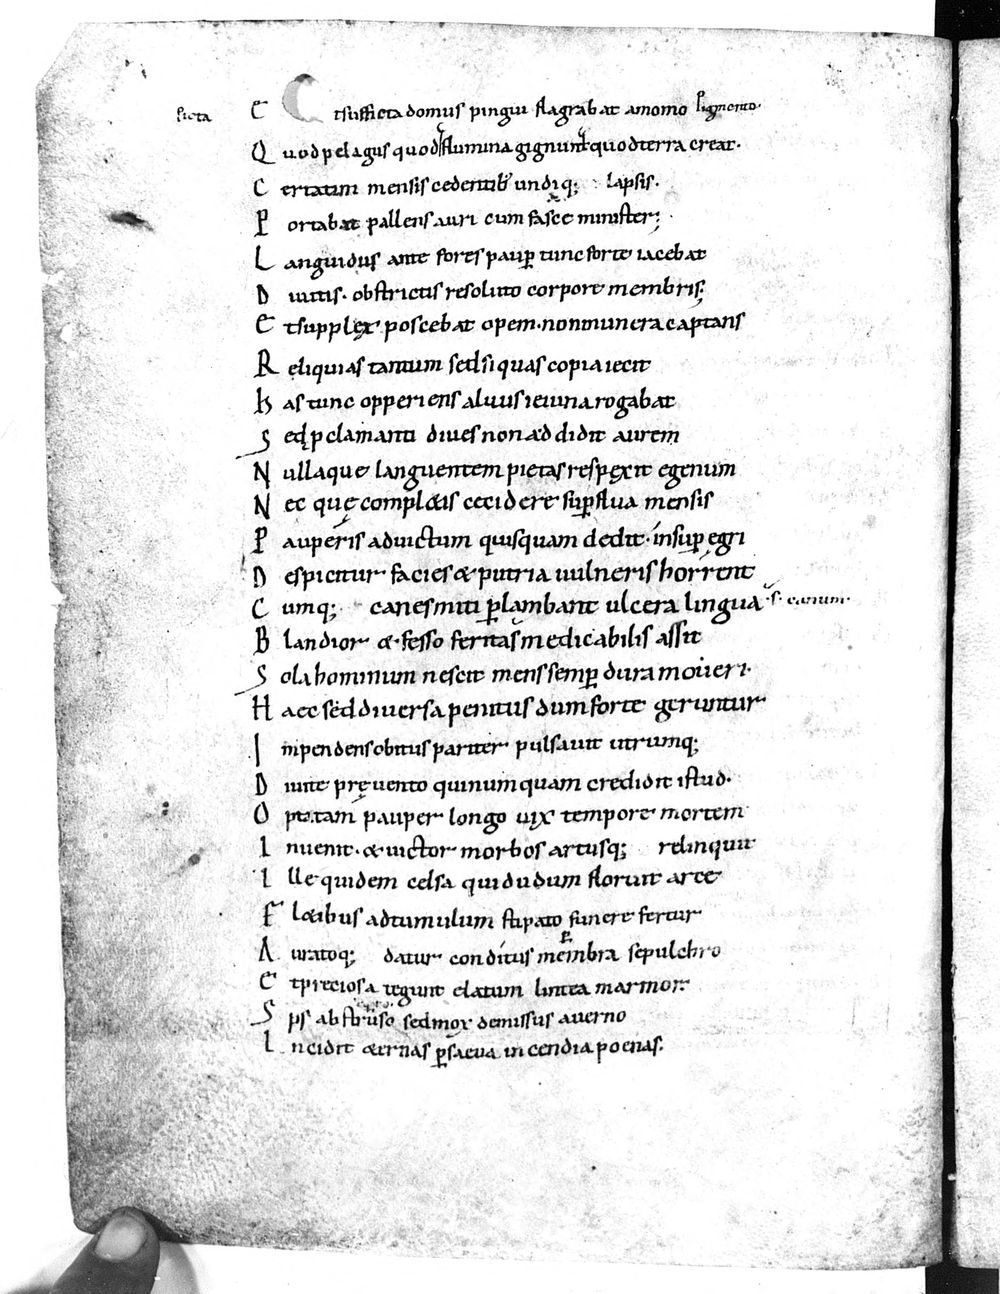 ficta Et suffecta domus pingui flagrabat amomo pigmento.
Quod pelagus quod flumina gignunt quod terra creat.
Certatim mensis cedentib; undiq; lapsis.
Portabat pallens auri cum fasce minister;
Languidus ante fores paup tunc forte iacebat
Diuitis. obstrictis resoluto corpore membris;
Et supplex poscebat opem. non munera captans
Reliquias tantum sed si quas copia iecit
has tunc opperiens aluus ieiuna rogabat
Sed pclamanti diues non addidit aurem
Nullaque languentem pietas respexit egenum
Nec quę complæis cecidere supflua mensis
Pauperis aduictum quisquam dedit. insup egri
Despicitur facies & putria uulneris horrent
Cumq; canes miti plambant ulcera lingua .s. canum.
Blandior & fesso feritas medicabilis assit
Sola hominum nescit mens semp dura moueri.
Haec sed diuersa penitus dum forte geruntur
Inpendens obitus pariter pulsauit utrumq;
Diuite pręuento qui numquam credidit istud.
Optatam pauper longo uix tempore mortem
Inuenit. & uictor morbos artusq; relinquit
Ille quidem celsa qui dudum floruit arce
Fl&ibus ad tumulum stipato funere fertur
Auratoq; datur conditus membra sepulchro
Et preciosa tegunt elatum lintea marmor
Sps abstruso sed mox demissus auerno
Incidit &ernas psaeua incendia poenas.